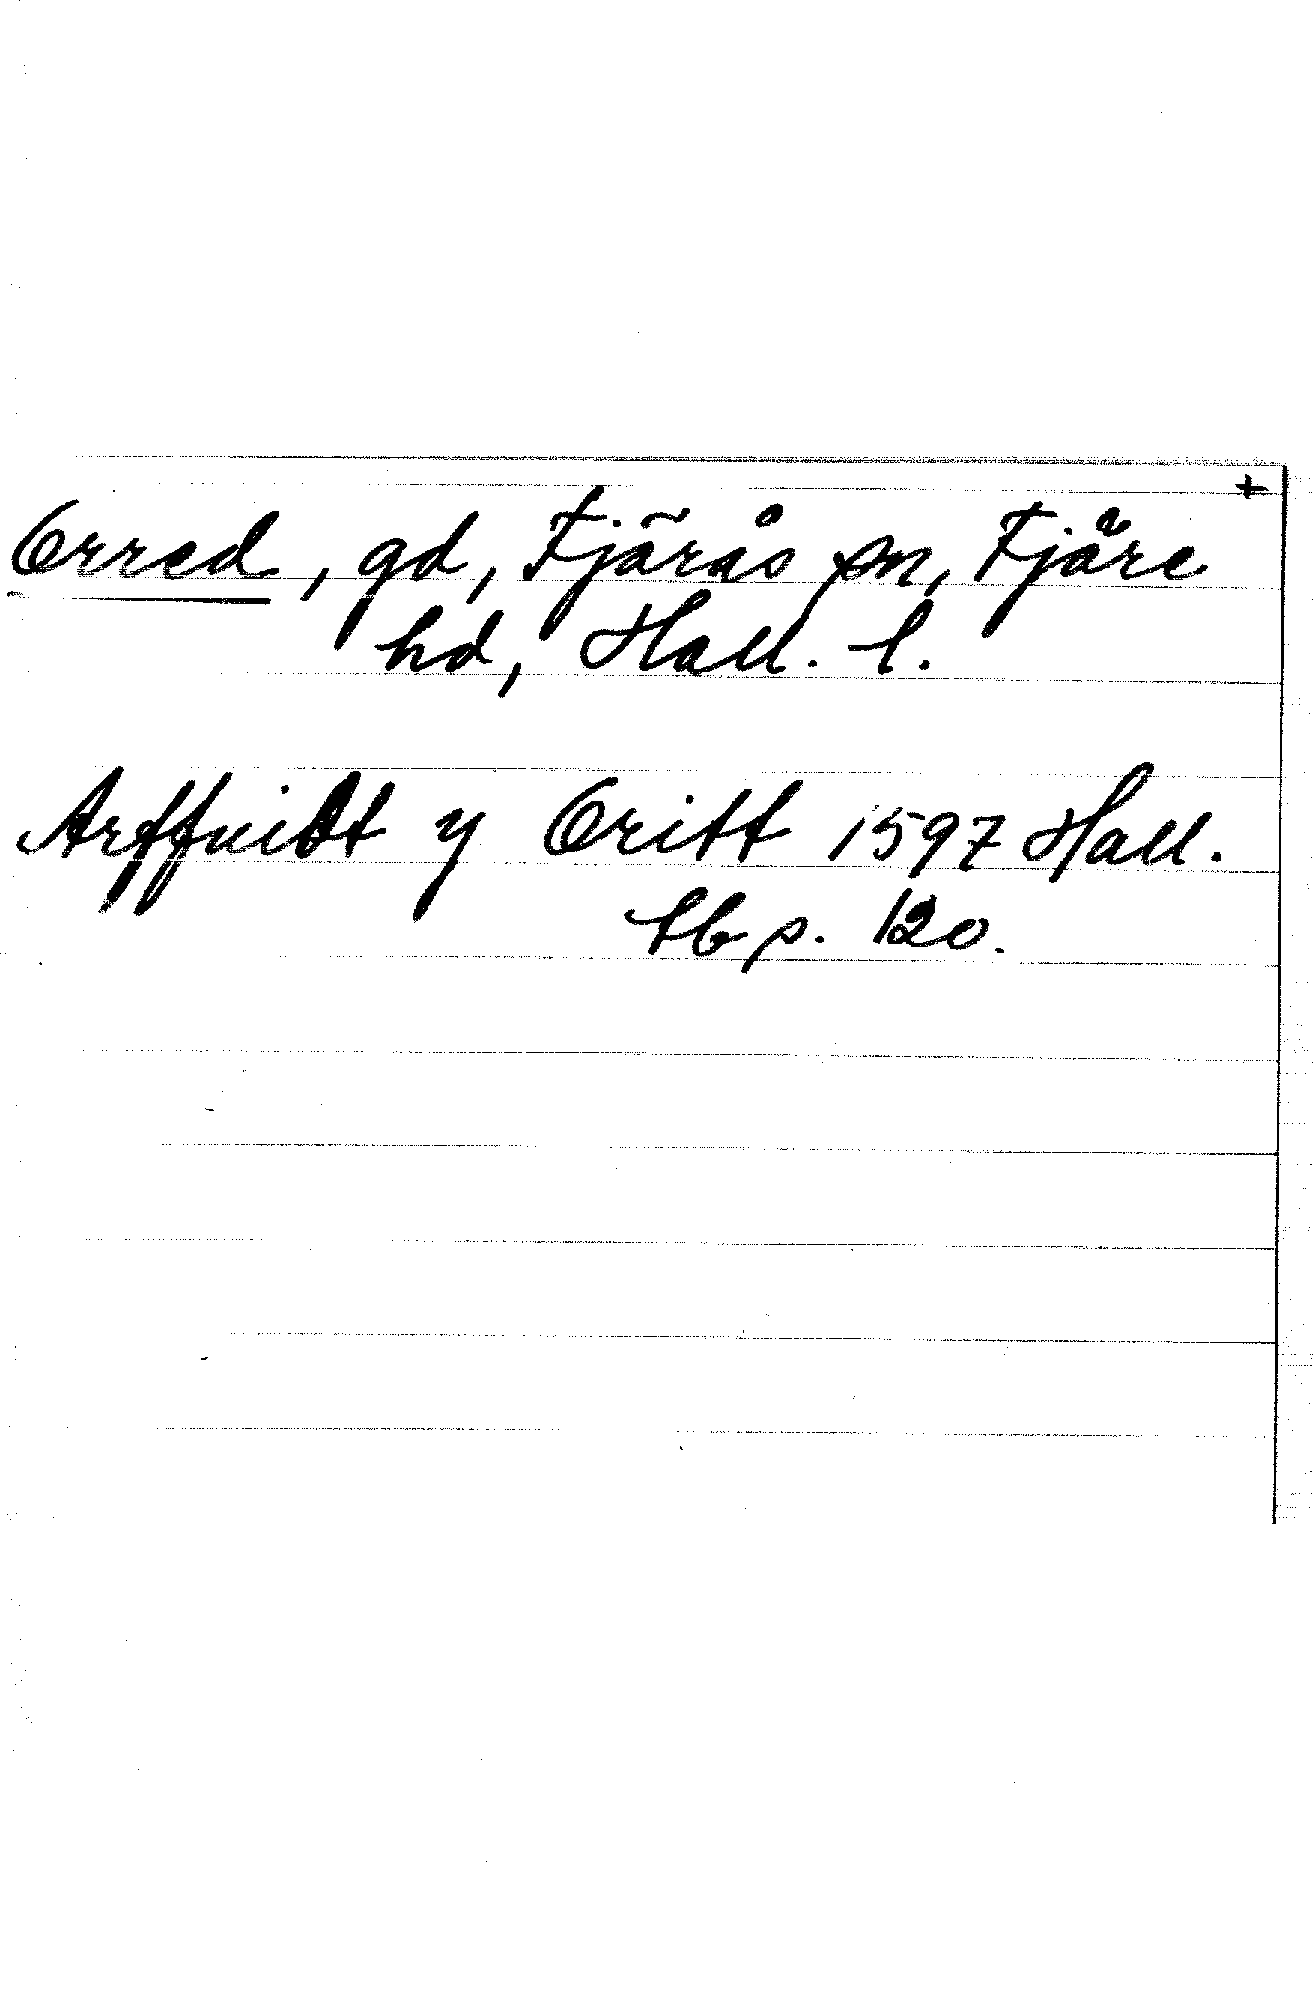 +
Orred, gd, Fjärås sn, Fjäre
hd, Hall. l.
Arffuidt y Oritt 1597 Hall.
tb p. 120.